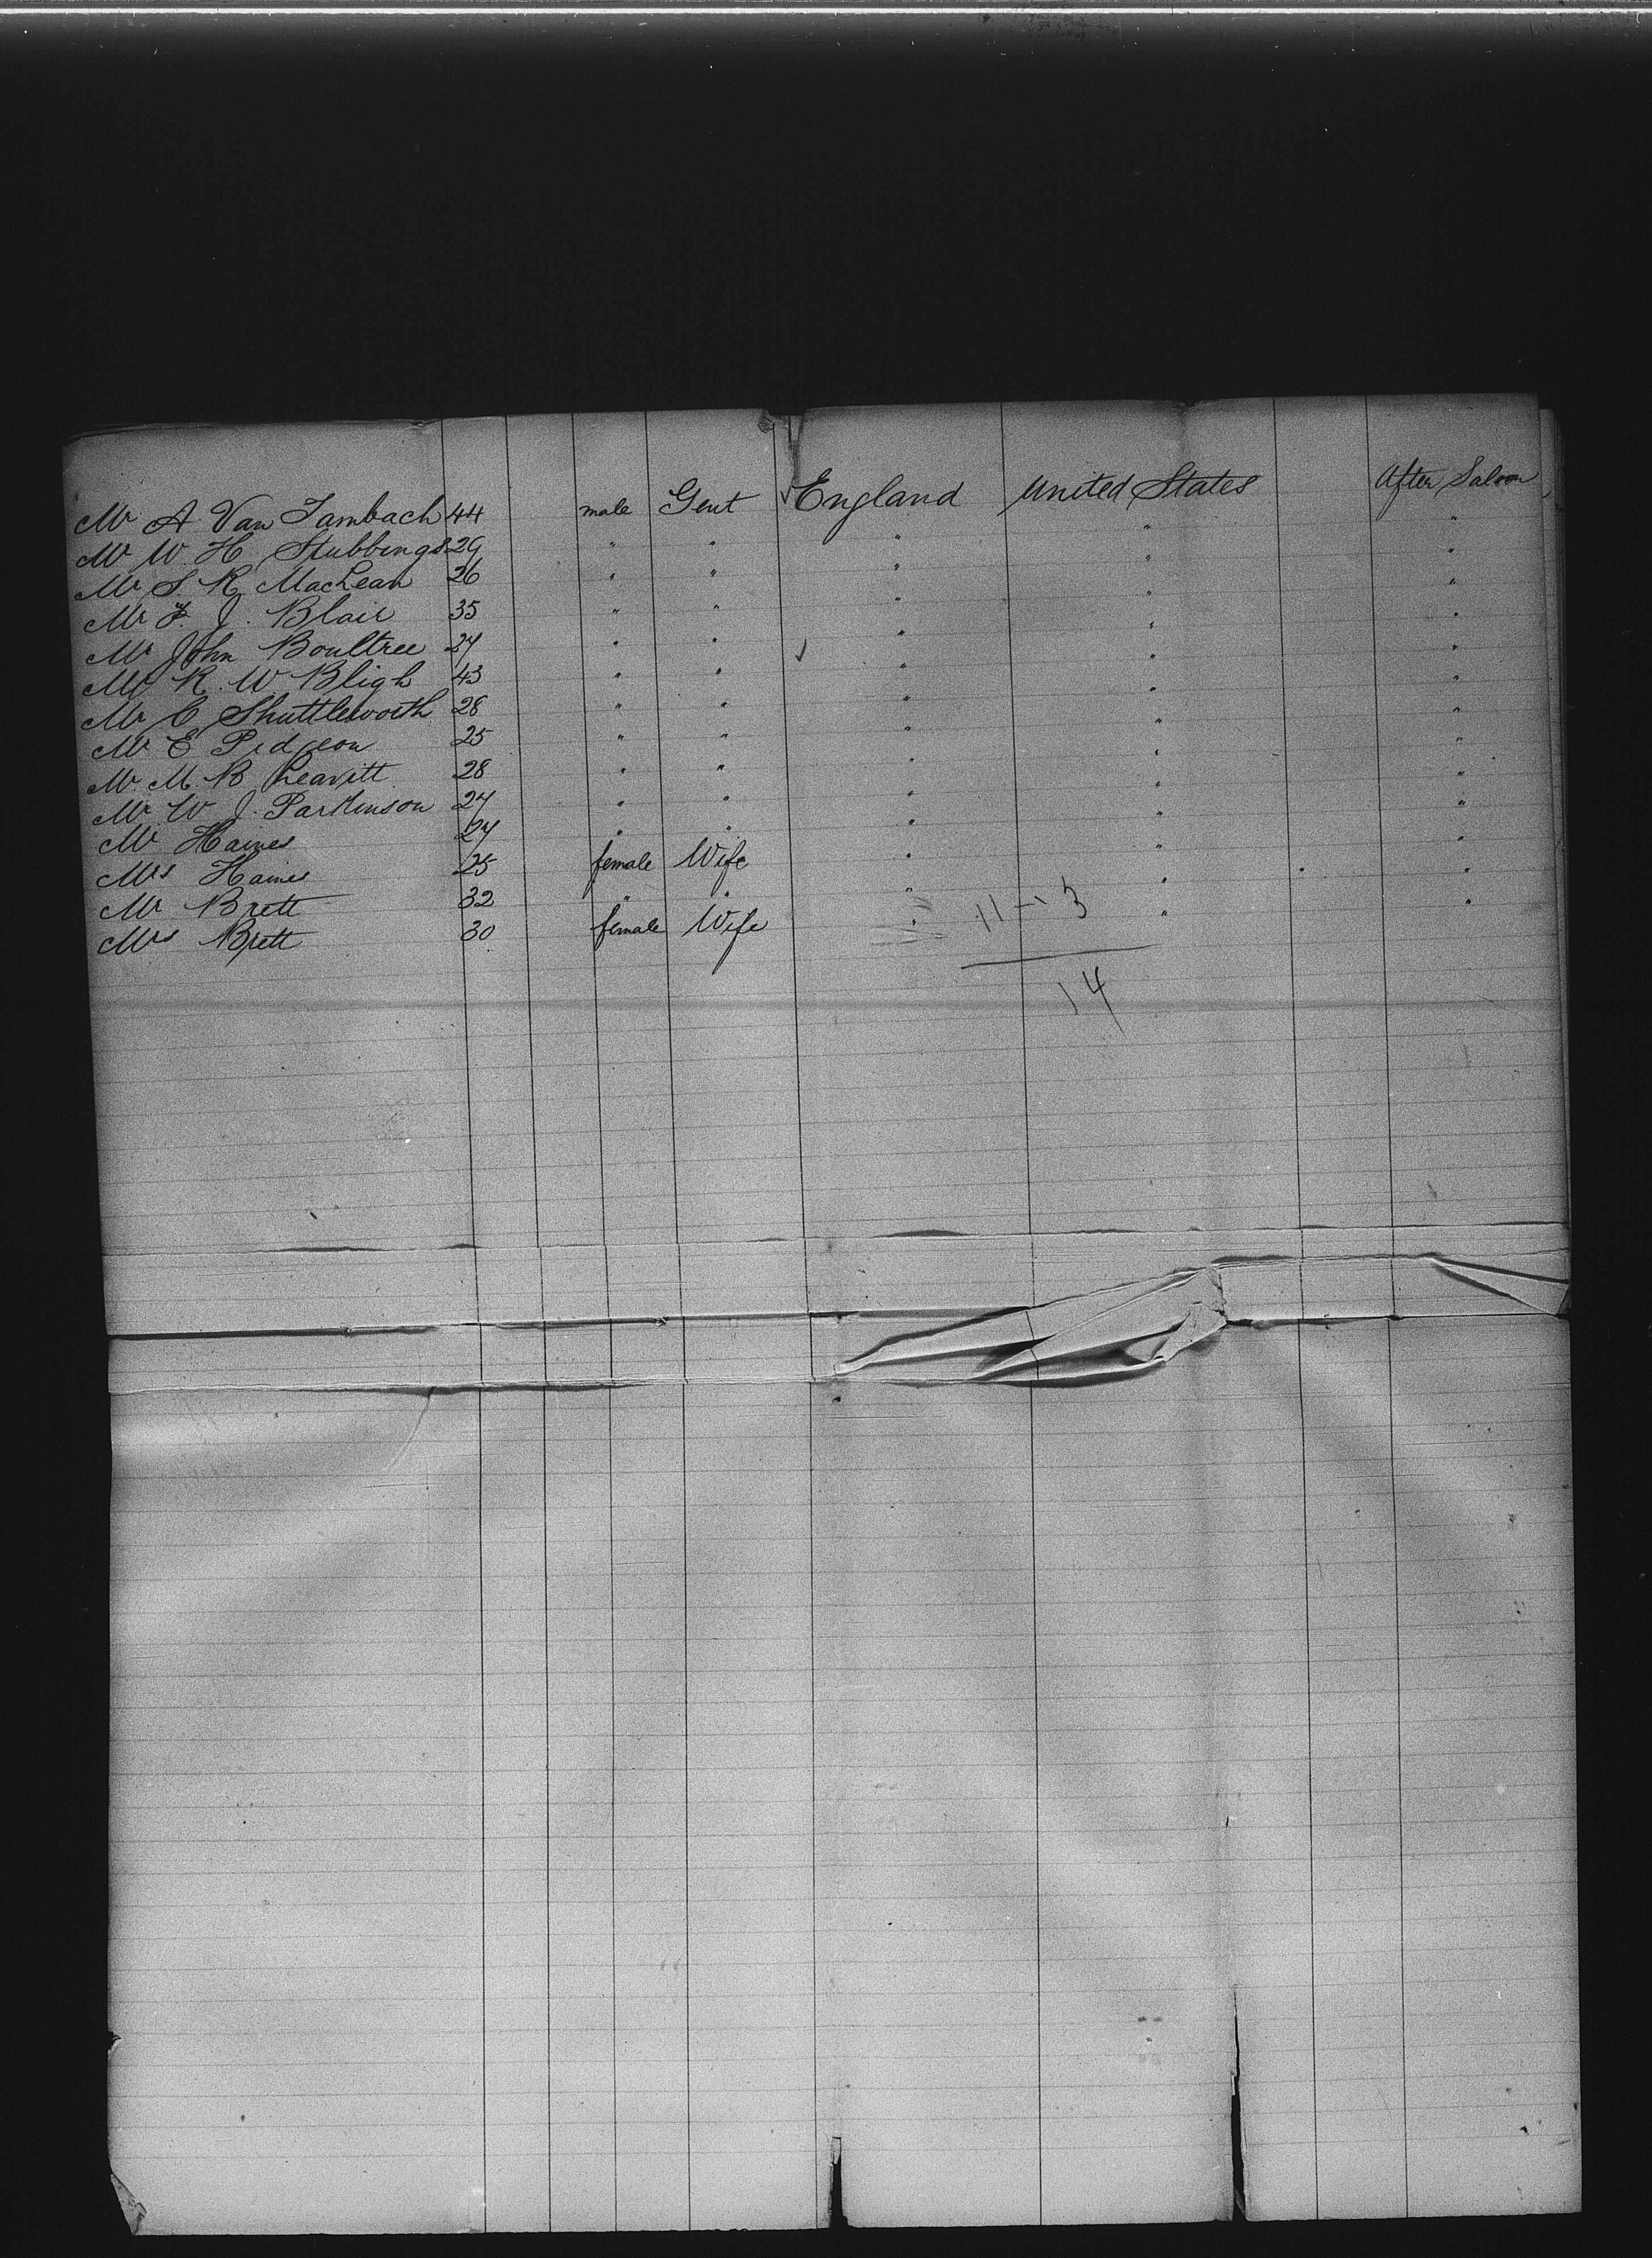 Mr A Van Tambach 44 male Gent England United States After Saloon
Mr W. H Stubbings 29 " " " " "
Mr S. R. MacLean 26 " " " " "
Mr F. J. Blair 35 " " " " "
Mr John Boultree 27 " " " " "
Mr R. W Bligh 43 " " " " "
Mr C Shuttleworth 28 " " " " "
Mr E Pidgeon 25 " " " " "
Mr. M. B Leavitt 28 " " " " "
Mr W J. Parkinson 27 " " " " "
Mr Haines 27 " " " " "
Mrs Haines 25 female Wife " " "
Mr Brett 32 " " " " "
Mrs Brett 30 female Wife " " "
11-13
14